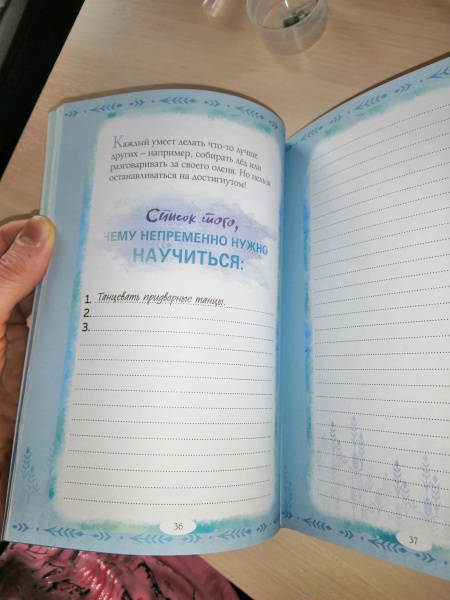 Каждый умеет делать что-то лучше
других – например, собирать лёд или
разговаривать за своего оленя. Но нельзя
останавливаться на достигнутом!
Список того,
ЧЕМУ НЕПРЕМЕННО НУЖНО
НАУЧИТЬСЯ:
1. Танцевать придворные танцы.
2.
3.
36
37